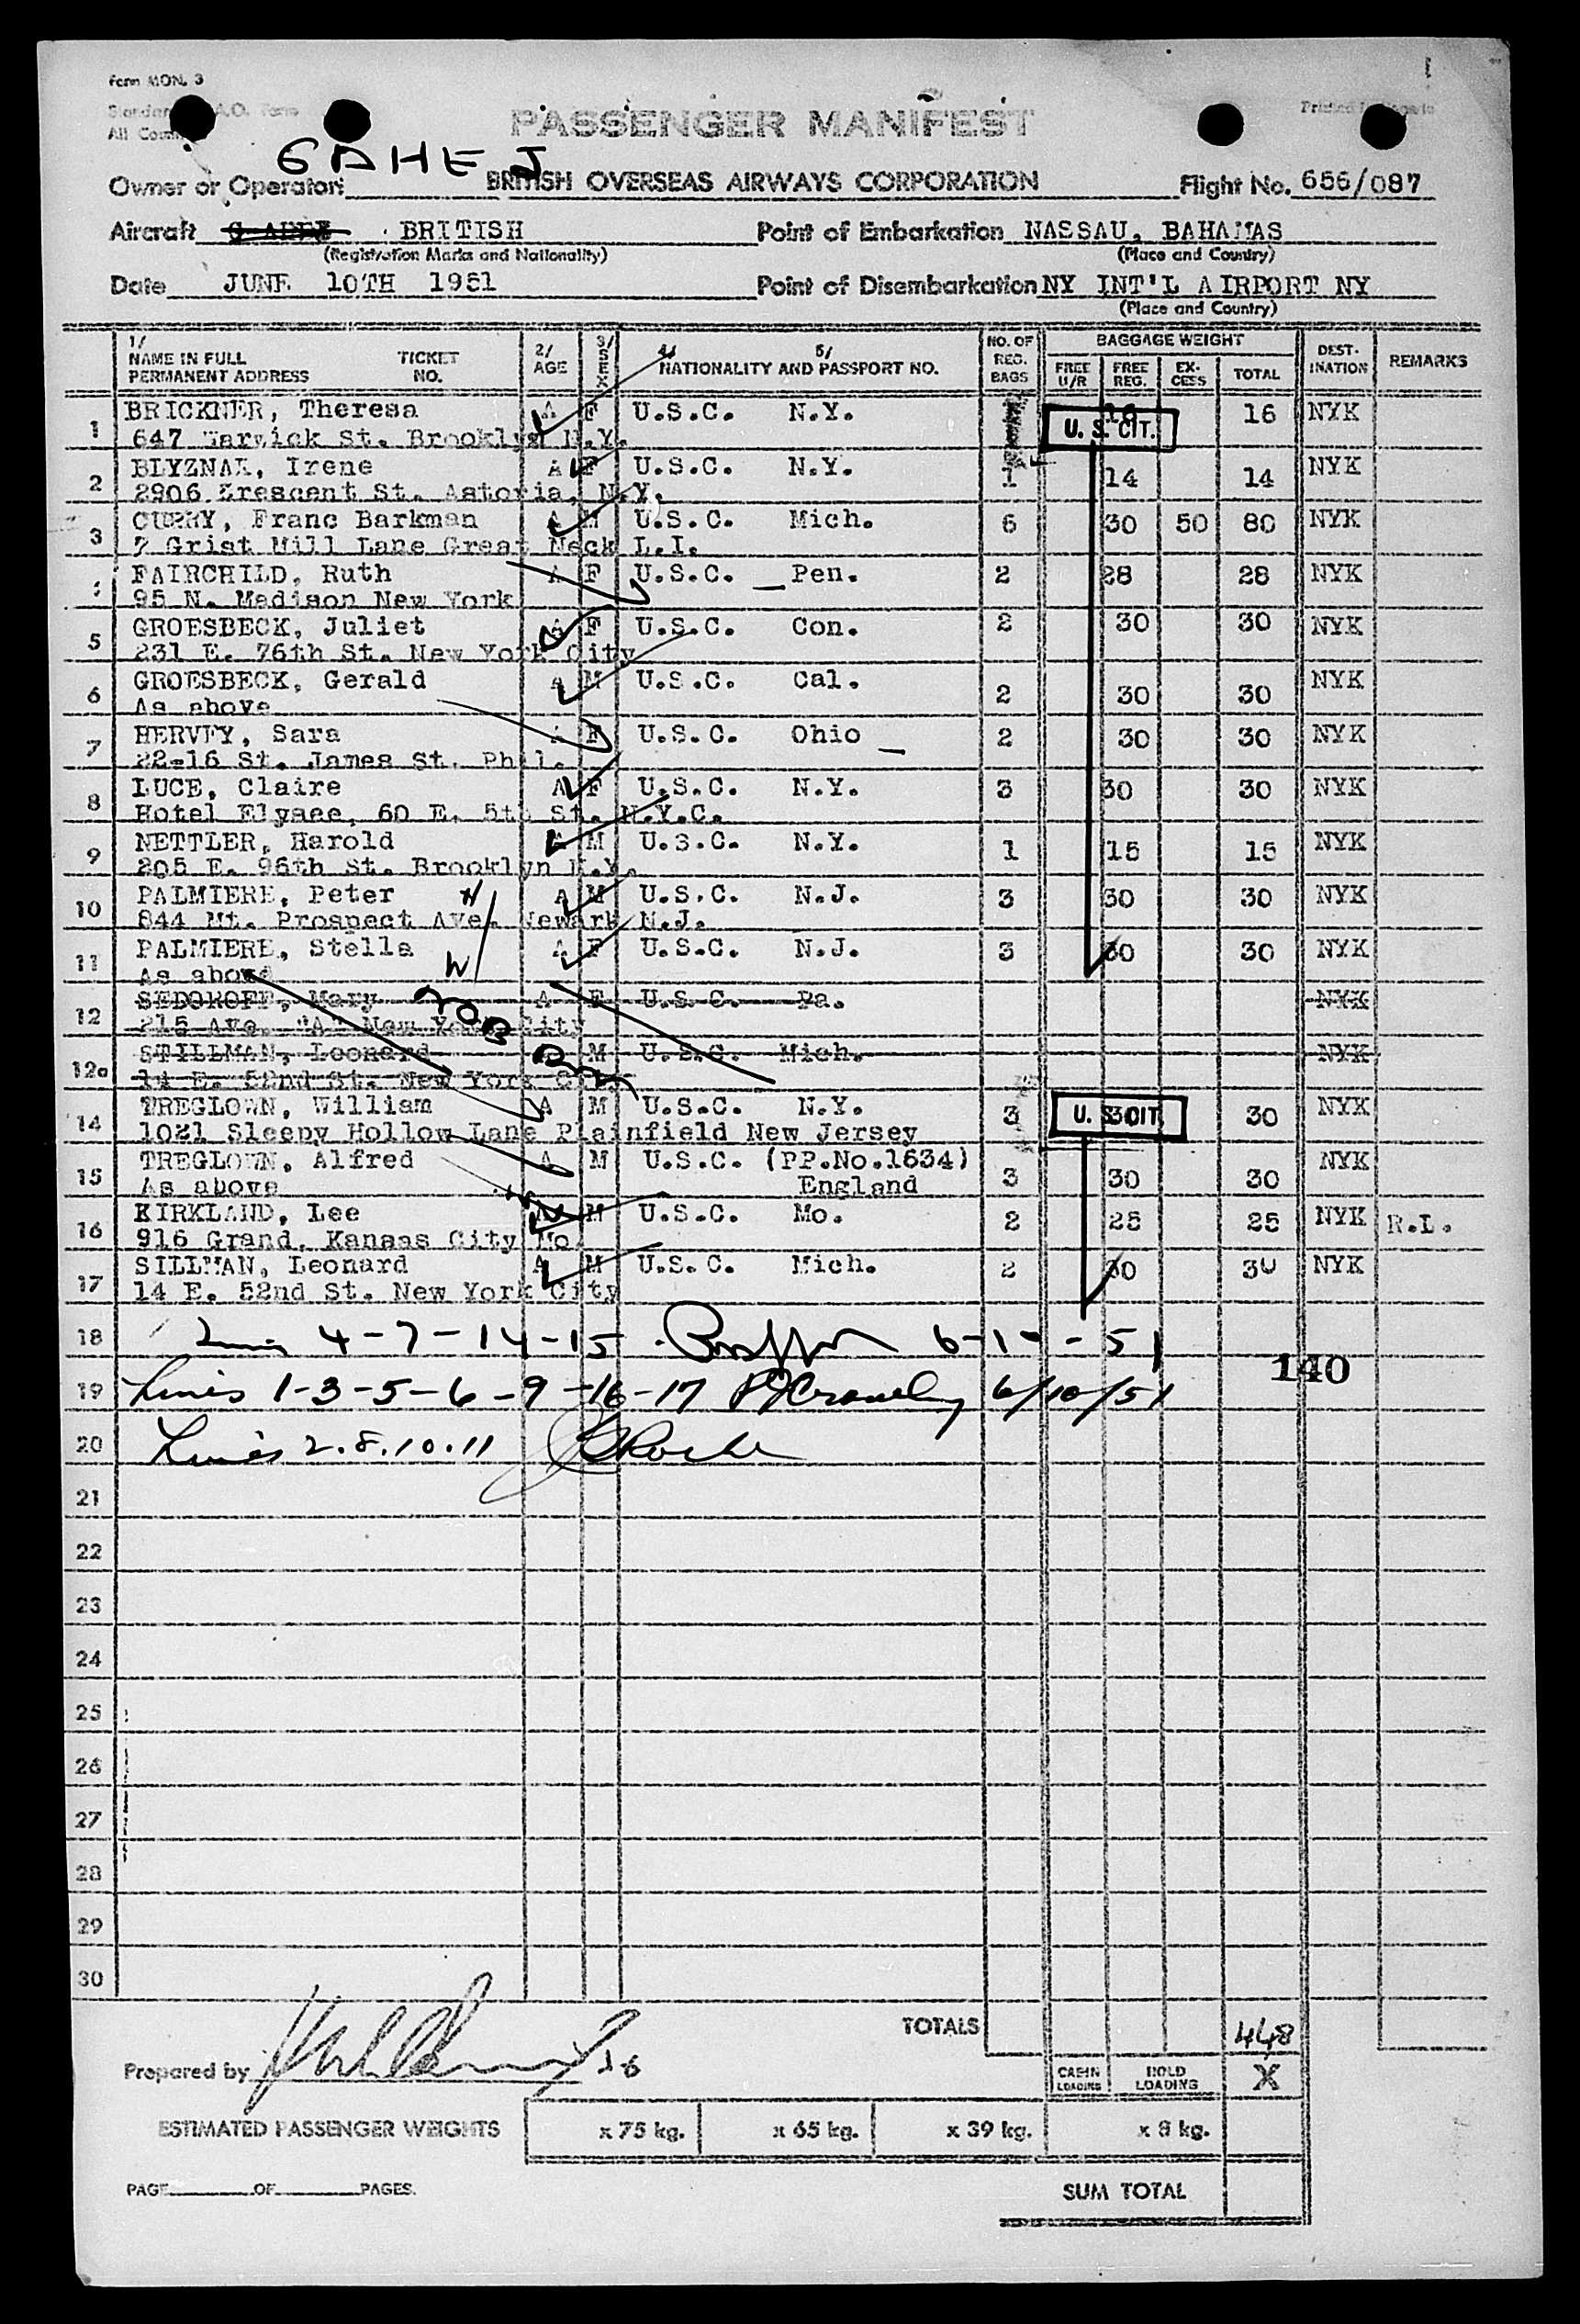 Form MON. 3
All
PASSENGER MANIFEST
G A H E J
Owner or Operator: BRITISH OVERSEAS AIRWAYS CORPORATION Flight No. 656/087
Aircraft BRITISH Point of Embarkation NASSAU, BAHAMAS
(Registration Marks and Nationality) (Place and Country)
Date JUNE 10TH 1951 Point of Disembarkation NY INT'L AIRPORT NY
(Place and Country)
1/ NAME IN FULL PERMANENT ADDRESS TICKET NO. 2/ AGE 3/ SEX 4/ 5/ NATIONALITY AND PASSPORT NO. NO. OF REG. BAGS BAGGAGE WEIGHT FREE U/R FREE REG. EX-CESS TOTAL DEST-INATION REMARKS
1 BRICKNER, Theresa A F U.S.C. N.Y. 1 16 16 NYK
647 Warwick St. Brooklyn N.Y.
U. S. CIT.
2 BLYZNAK, Irene A F U.S.C. N.Y. 1 14 14 NYK
2906 Crescent St. Astoria, N.Y.
3 CURRY, Franc Barkman A M U.S.C. Mich. 6 30 50 80 NYK
7 Grist Mill Lane Great Neck L.I.
FAIRCHILD, Ruth A F U.S.C. Pen. 2 28 28 NYK
95 N. Madison New York
5 GROESBECK, Juliet A F U.S.C. Con. 2 30 30 NYK
231 E. 76th St. New York City
6 GROESBECK, Gerald A M U.S.C. Cal. 2 30 30 NYK
As above
7 HERVEY, Sara A F U.S.C. Ohio 2 30 30 NYK
22-16 St. James St. Phil.
8 LUCE, Claire A F U.S.C. N.Y. 3 30 30 NYK
Hotel Elysee, 60 E. 5th St. N.Y.C.
9 NETTLER, Harold A M U.S.C. N.Y. 1 15 15 NYK
205 E. 96th St. Brooklyn N.Y.
10 PALMIERE, Peter H A M U.S.C. N.J. 3 30 30 NYK
844 Mt. Prospect Ave. Newark N.J.
11 PALMIERE, Stella W A F U.S.C. N.J. 3 30 30 NYK
As above
12 SEDOROFF, Mary A F U.S.C. Pa. NYK
215 Ave. "A" New York City
NOB
12a STILLMAN, Leonard M U.S.C. Mich. NYK
14 E. 52nd St. New York City
14 TREGLOWN, William A M U.S.C. N.Y. 3 30 30 NYK
1021 Sleepy Hollow Lane Plainfield New Jersey
U. S. CIT
15 TREGLOWN, Alfred A M U.S.C. (PP.No.1634) 3 30 30 NYK
As above England
16 KIRKLAND, Lee M U.S.C. Mo. 2 25 25 NYK R.L.
916 Grand, Kansas City Mo
17 SILLMAN, Leonard A M U.S.C. Mich. 2 30 30 NYK
14 E. 52nd St. New York City
18 4-7-14-15 6-10-51
140
19 Lines 1-3-5-6-9-16-17 6/10/51
20 Lines 2.8.10.11
21
22
23
24
25
26
27
28
29
30
TOTALS 448
Prepared by
CABIN LOADING HOLD LOADING X
ESTIMATED PASSENGER WEIGHTS x 75 kg. x 65 kg. x 39 kg. x 8 kg.
PAGE OF PAGES.
SUM TOTAL